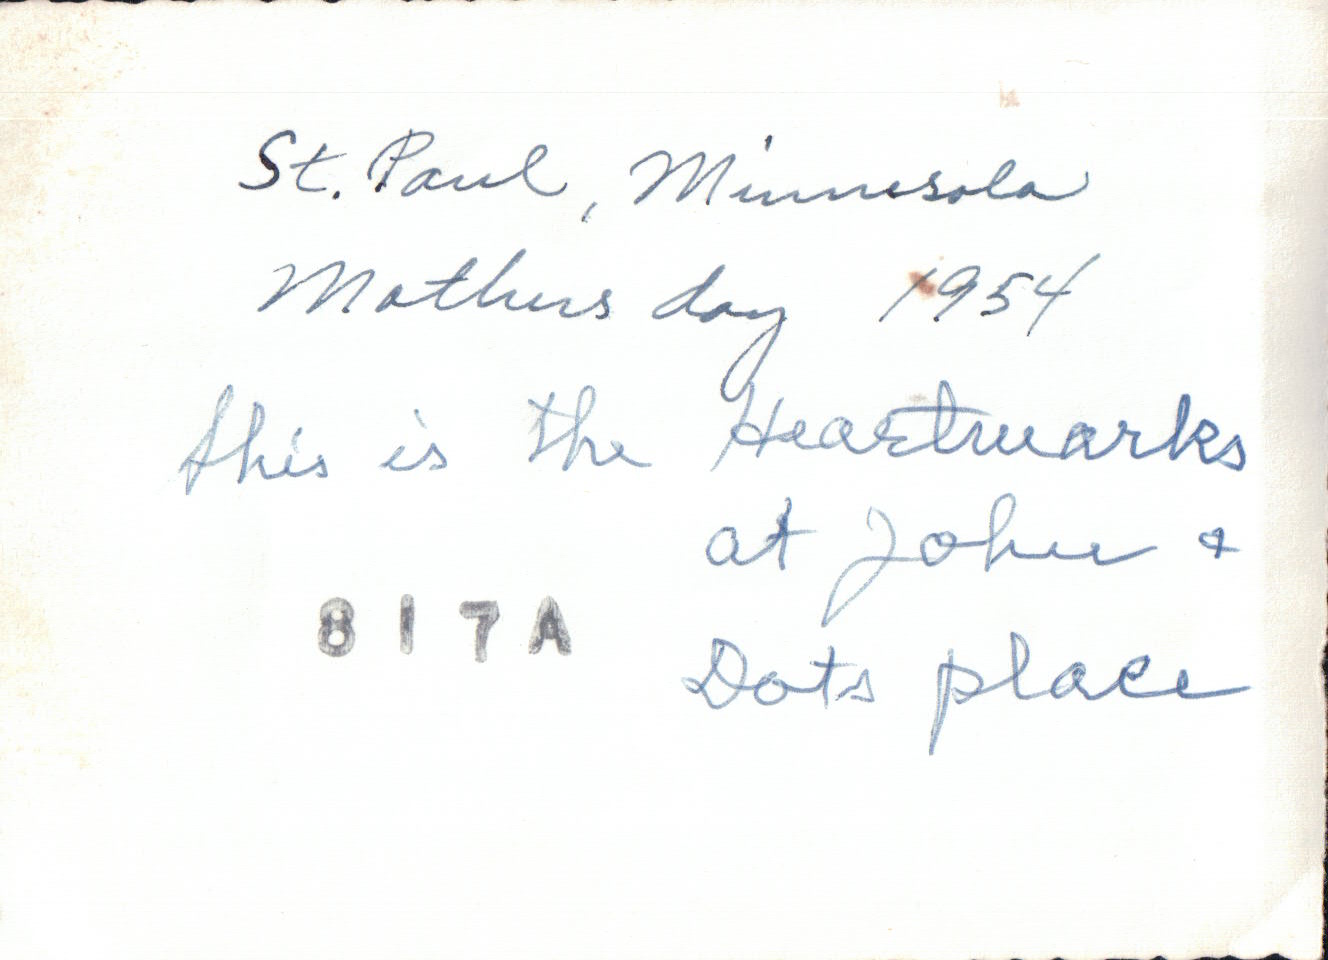 St. Paul, Minnesota
Mothers day 1954
this is the Heartwarks
at John &
817A
Dots place